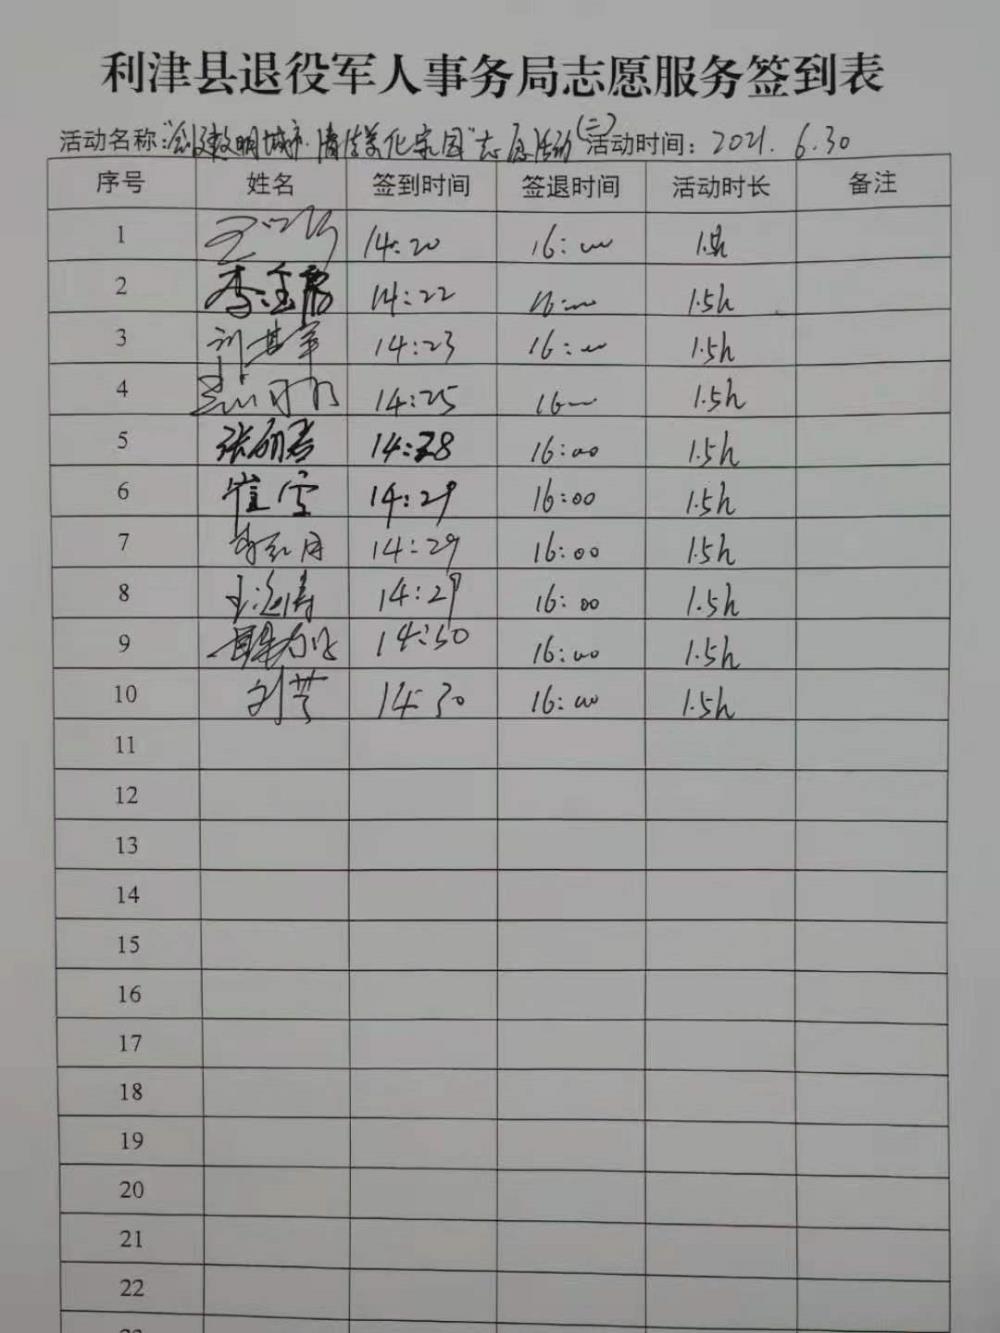 利津县退役军人事务局志愿服务签到表
活动名称:"创建文明城市·清洁美化家园"志愿活动(二) 活动时间: 2021. 6.30
序号 姓名 签到时间 签退时间 活动时长 备注
1 14:20 16:00
2 14:22 16:00 1.5h
3 14:23 16:00 1.5h
4 14:25 16 1.5h
5 14:28 16:00 1.5h
6 崔雪 14:29 16:00 1.5h
7 14:29 16:00 1.5h
8 14:29 16:00 1.5h
9 14:30 16:00 1.5h
10 刘芳 14:30 16:00 1.5h
11
12
13
14
15
16
17
18
19
20
21
22
23